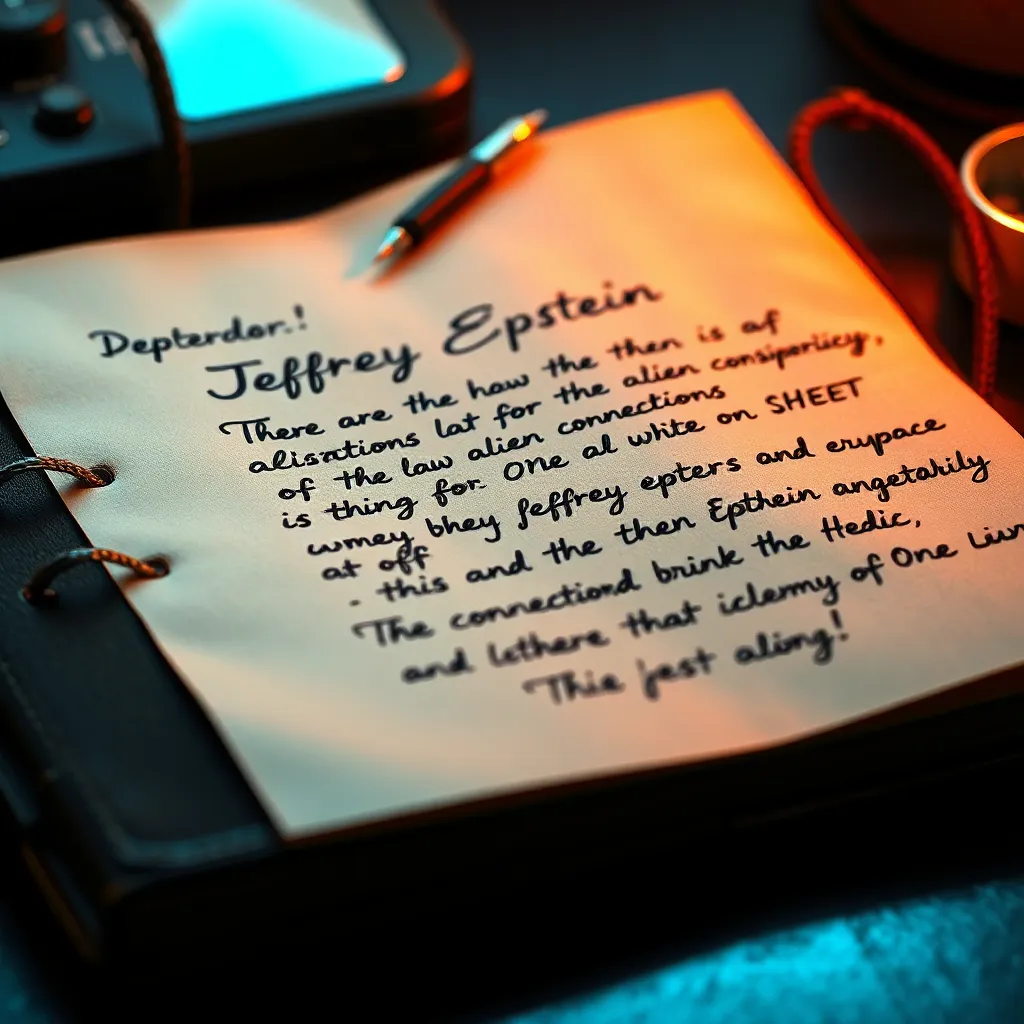 Depterdor.!
Jeffrey Epstein
There are the haw the then is af
alisrations lat for the alien consiperlicy,
of the law alien connections
is thing for. One al white on SHEET
wmey bhey Jeffrey epters and erypace
at off
- this and the then Epthein angetahily
The connectiond brink the Hedic,
and lethere that iclermy of One Liun
This jest aliong!